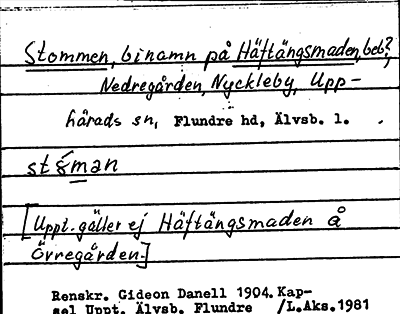 Stommen, binamn på Häftängsmaden, beb?,
Nedregården, Nyckleby, Upp-
härads sn, Flundre hd, Älvsb. l.
[Uppt. gäller ej Häftängsmaden å
Övregården.]
Renskr. Gideon Danell 1904. Kap-
sel Uppt. Älvsb. Flundre /L.Aks.1981